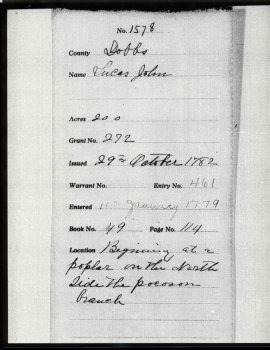 No. 1578
County Dobbs
Name Lucas John
Acres 200
Grant No. 272
Issued 29th October 1782
Warrant No. Entry No. 461
Entered January 1779
Book No. 49 Page No. 114
Location Beginning at a
poplar on the North
side the pocoson
branch